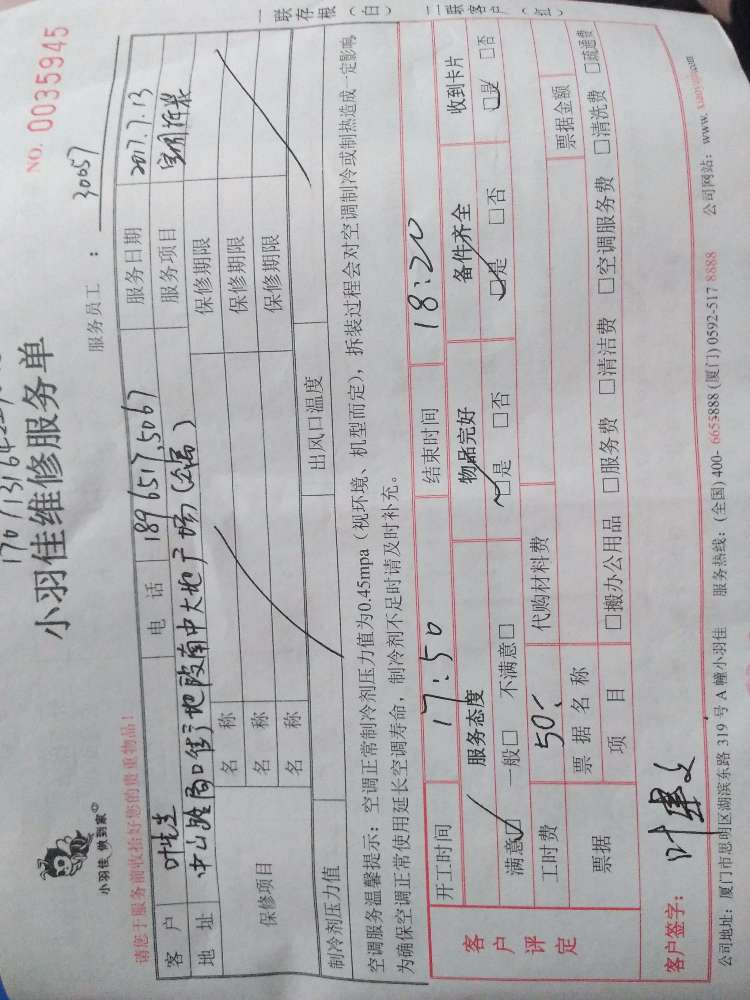 小羽佳维修服务单
NO. 0035945
小羽佳 做到家
请您于服务前收拾好您的贵重物品!
服务员工: 30057
客户 叶先生 电话 18965175067 服务日期 2017.7.13
地址 服务项目 空调拆装
保修项目 名称 保修期限
名称 保修期限
名称 保修期限
制冷剂压力值 出风口温度
空调服务温馨提示:空调正常制冷剂压力值为0.45mpa(视环境、机型而定),拆装过程会对空调制冷或制热造成一定影响
为确保空调正常使用延长空调寿命,制冷剂不足时请及时补充。
客户评定 开工时间 17:50 结束时间 18:20
服务态度 物品完好 备件齐全 收到卡片
满意☑ 一般□ 不满意□ ☑是 □否 ☑是 □否 ☑是 □否
工时费 50 代购材料费
票据 票据名称 票据金额
项目 □搬办公用品 □服务费 □清洁费 □空调服务费 □清洗费 □疏通费
客户签字:
公司地址:厦门市思明区湖滨东路 319 号 A 幢小羽佳 服务热线:(全国)400-6655888 (厦门)0592-517 8888 公司网站:www.xiaoyujia.com
一联存根(白) 二联客户(红)